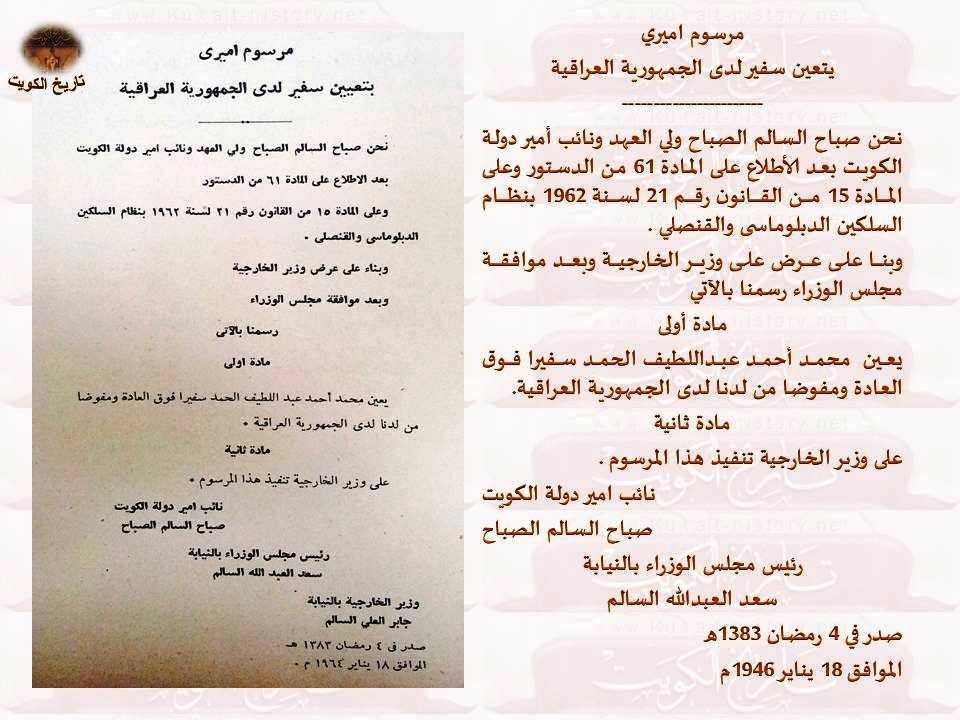 تاريخ الكويت
مرسوم اميرى
بتعيين سفير لدى الجمهورية العراقية
نحن صباح السالم الصباح ولي العهد ونائب امير دولة الكويت
بعد الاطلاع على المادة ٦١ من الدستور
وعلى المادة ١٥ من القانون رقم ٢١ لسنة ١٩٦٢ بنظام السلكين
الدبلوماسى والقنصلى .
وبناء على عرض وزير الخارجية
وبعد موافقة مجلس الوزراء
رسمنا بالآتى
مادة اولى
يعين محمد أحمد عبد اللطيف الحمد سفيرا فوق العادة ومفوضا
من لدنا لدى الجمهورية العراقية .
مادة ثانية
على وزير الخارجية تنفيذ هذا المرسوم .
نائب امير دولة الكويت
صباح السالم الصباح
رئيس مجلس الوزراء بالنيابة
سعد العبد الله السالم
وزير الخارجية بالنيابة
جابر العلي السالم
صدر فى ٤ رمضان ١٣٨٣ هـ
الموافق ١٨ يناير ١٩٦٤ م .
مرسوم اميري
يتعين سفير لدى الجمهورية العراقية
-----------------------
نحن صباح السالم الصباح ولي العهد ونائب أمير دولة
الكويت بعد الأطلاع على المادة 61 من الدستور وعلى
المادة 15 من القانون رقم 21 لسنة 1962 بنظام
السلكين الدبلوماسى والقنصلي .
وبنا على عرض على وزير الخارجية وبعد موافقة
مجلس الوزراء رسمنا بالآتي
مادة أولى
يعين محمد أحمد عبداللطيف الحمد سفيرا فوق
العادة ومفوضا من لدنا لدى الجمهورية العراقية.
مادة ثانية
على وزير الخارجية تنفيذ هذا المرسوم .
نائب امير دولة الكويت
صباح السالم الصباح
رئيس مجلس الوزراء بالنيابة
سعد العبدالله السالم
صدر في 4 رمضان 1383هـ
الموافق 18 يناير 1946م